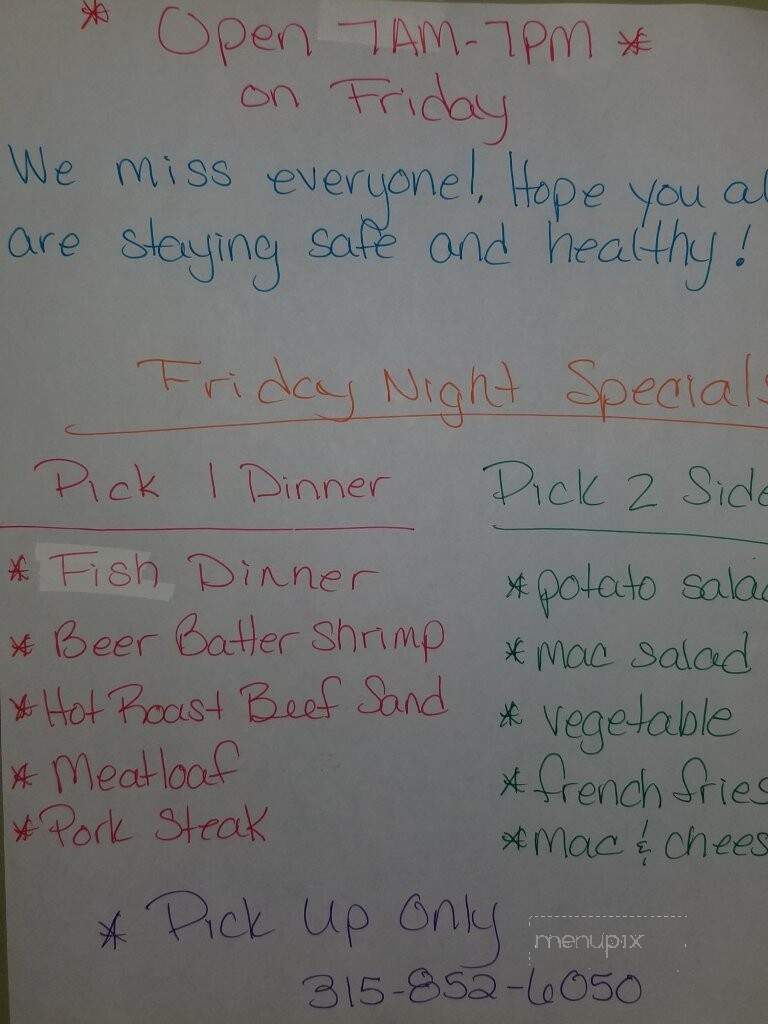 * Open 7AM-7PM *
on Friday
We miss everyone!. Hope you al
are staying safe and healthy!
Friday Night Specials
Pick 1 Dinner
* Fish Dinner
* Beer Batter Shrimp
* Hot Roast Beef Sand
* Meatloaf
* Pork Steak
Pick 2 Side
* potato salad
* mac salad
* vegetable
* french fries
* mac & chees
* Pick Up Only
315-852-6050
menupix